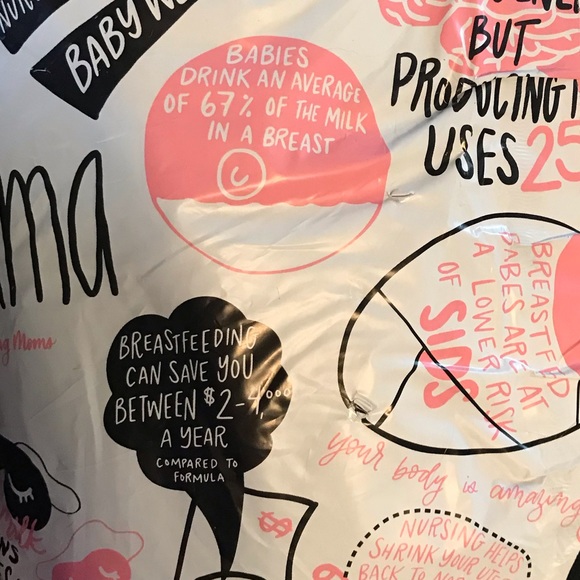 BABY
BABIES
DRINK AN AVERAGE
OF 67% OF THE MILK
IN A BREAST
BUT
PRODUCING
USES 25
ma
Moms
BREASTFED
BABES ARE AT
A LOWER RISK
OF SIDS
BREASTFEEDING
CAN SAVE YOU
BETWEEN $2-4,000
A YEAR
COMPARED TO
FORMULA
your body is amazing
$
NURSING HELPS
SHRINK YOUR
BACK TO